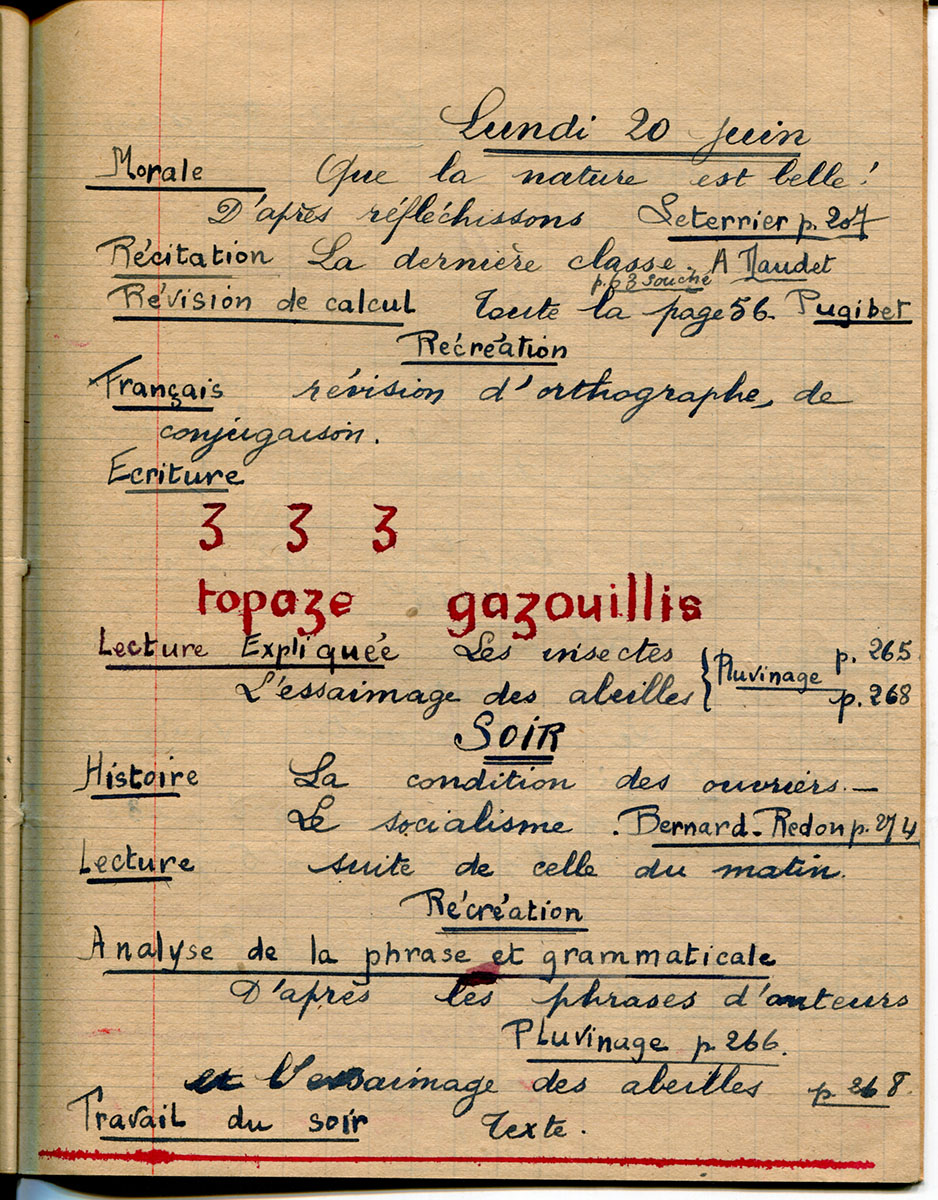 Lundi 20 juin
Morale Que la nature est belle!
D'après réfléchissons Leterrier p. 207
Récitation La dernière classe. A Naudet
p. 63 Souché
Révision de calcul Toute la page 56. Pugibet
Recréation
Français révision d'orthographe, de
conjugaison.
Ecriture
z z z
topaze gazouillis
Lecture Expliquée Les insectes p. 265
L'essaimage des abeilles Pluvinage p. 268
SOIR
Histoire La condition des ouvriers. —
Le socialisme. Bernard-Redon p. 274
Lecture suite de celle du matin.
Récréation
Analyse de la phrase et grammaticale
D'après les phrases d'auteurs
Pluvinage p. 266.
et l'essaimage des abeilles p. 268.
Travail du soir Texte.